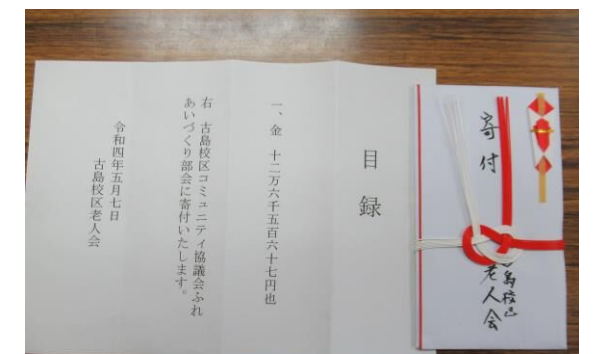 寄付
古島校区
老人会
目録
一、金 十二万六千五百六十七円也
右 古島校区コミュニティ協議会ふれ
あいづくり部会に寄付いたします。
令和四年五月七日
古島校区老人会